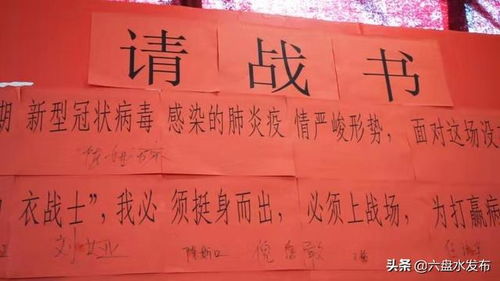 请战书
期 新型冠状病毒 感染的肺炎疫 情严峻形势， 面对这场设
衣战士”，我必 须挺身而出， 必须上战场， 为打赢病
头条 @六盘水发布